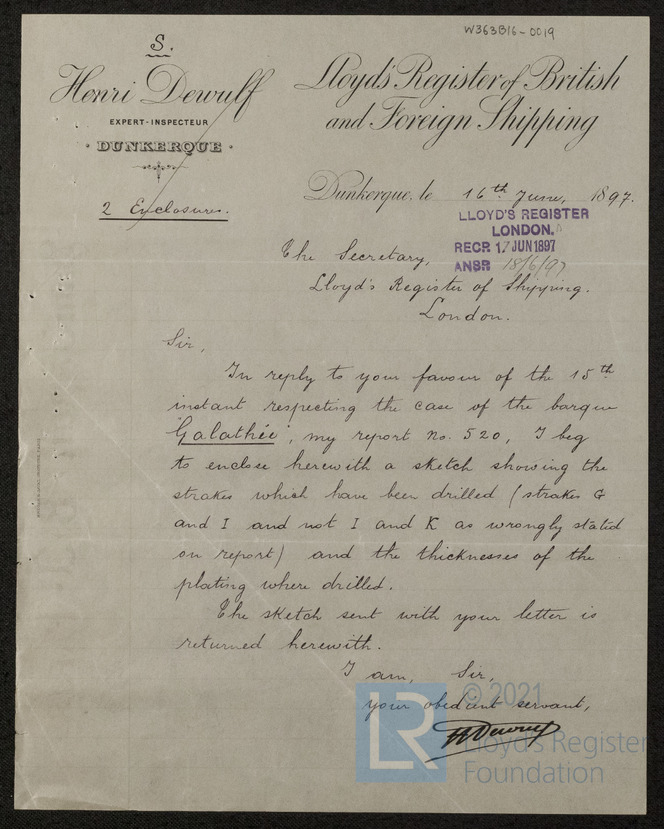 W363B16-0019
S.
Henri Dewulf
EXPERT-INSPECTEUR
DUNKERQUE
2 Enclosures.
Lloyd's Register of British
and Foreign Shipping
Dunkerque, le 16th June, 1897.
LLOYD'S REGISTER
LONDON.
RECR 17 JUN 1897
ANSR 18/6/97
The Secretary,
Lloyd's Register of Shipping.
London.
Sir,
In reply to your favour of the 15th
instant respecting the case of the barque
"Galathée", my report No. 520, I beg
to enclose herewith a sketch showing the
strakes which have been drilled (strakes G
and I and not I and K as wrongly stated
on report) and the thicknesses of the
plating where drilled.
The sketch sent with your letter is
returned herewith.
I am, Sir,
your obedient servant,
HDewulf
LR
© 2021
Lloyd's Register
Foundation